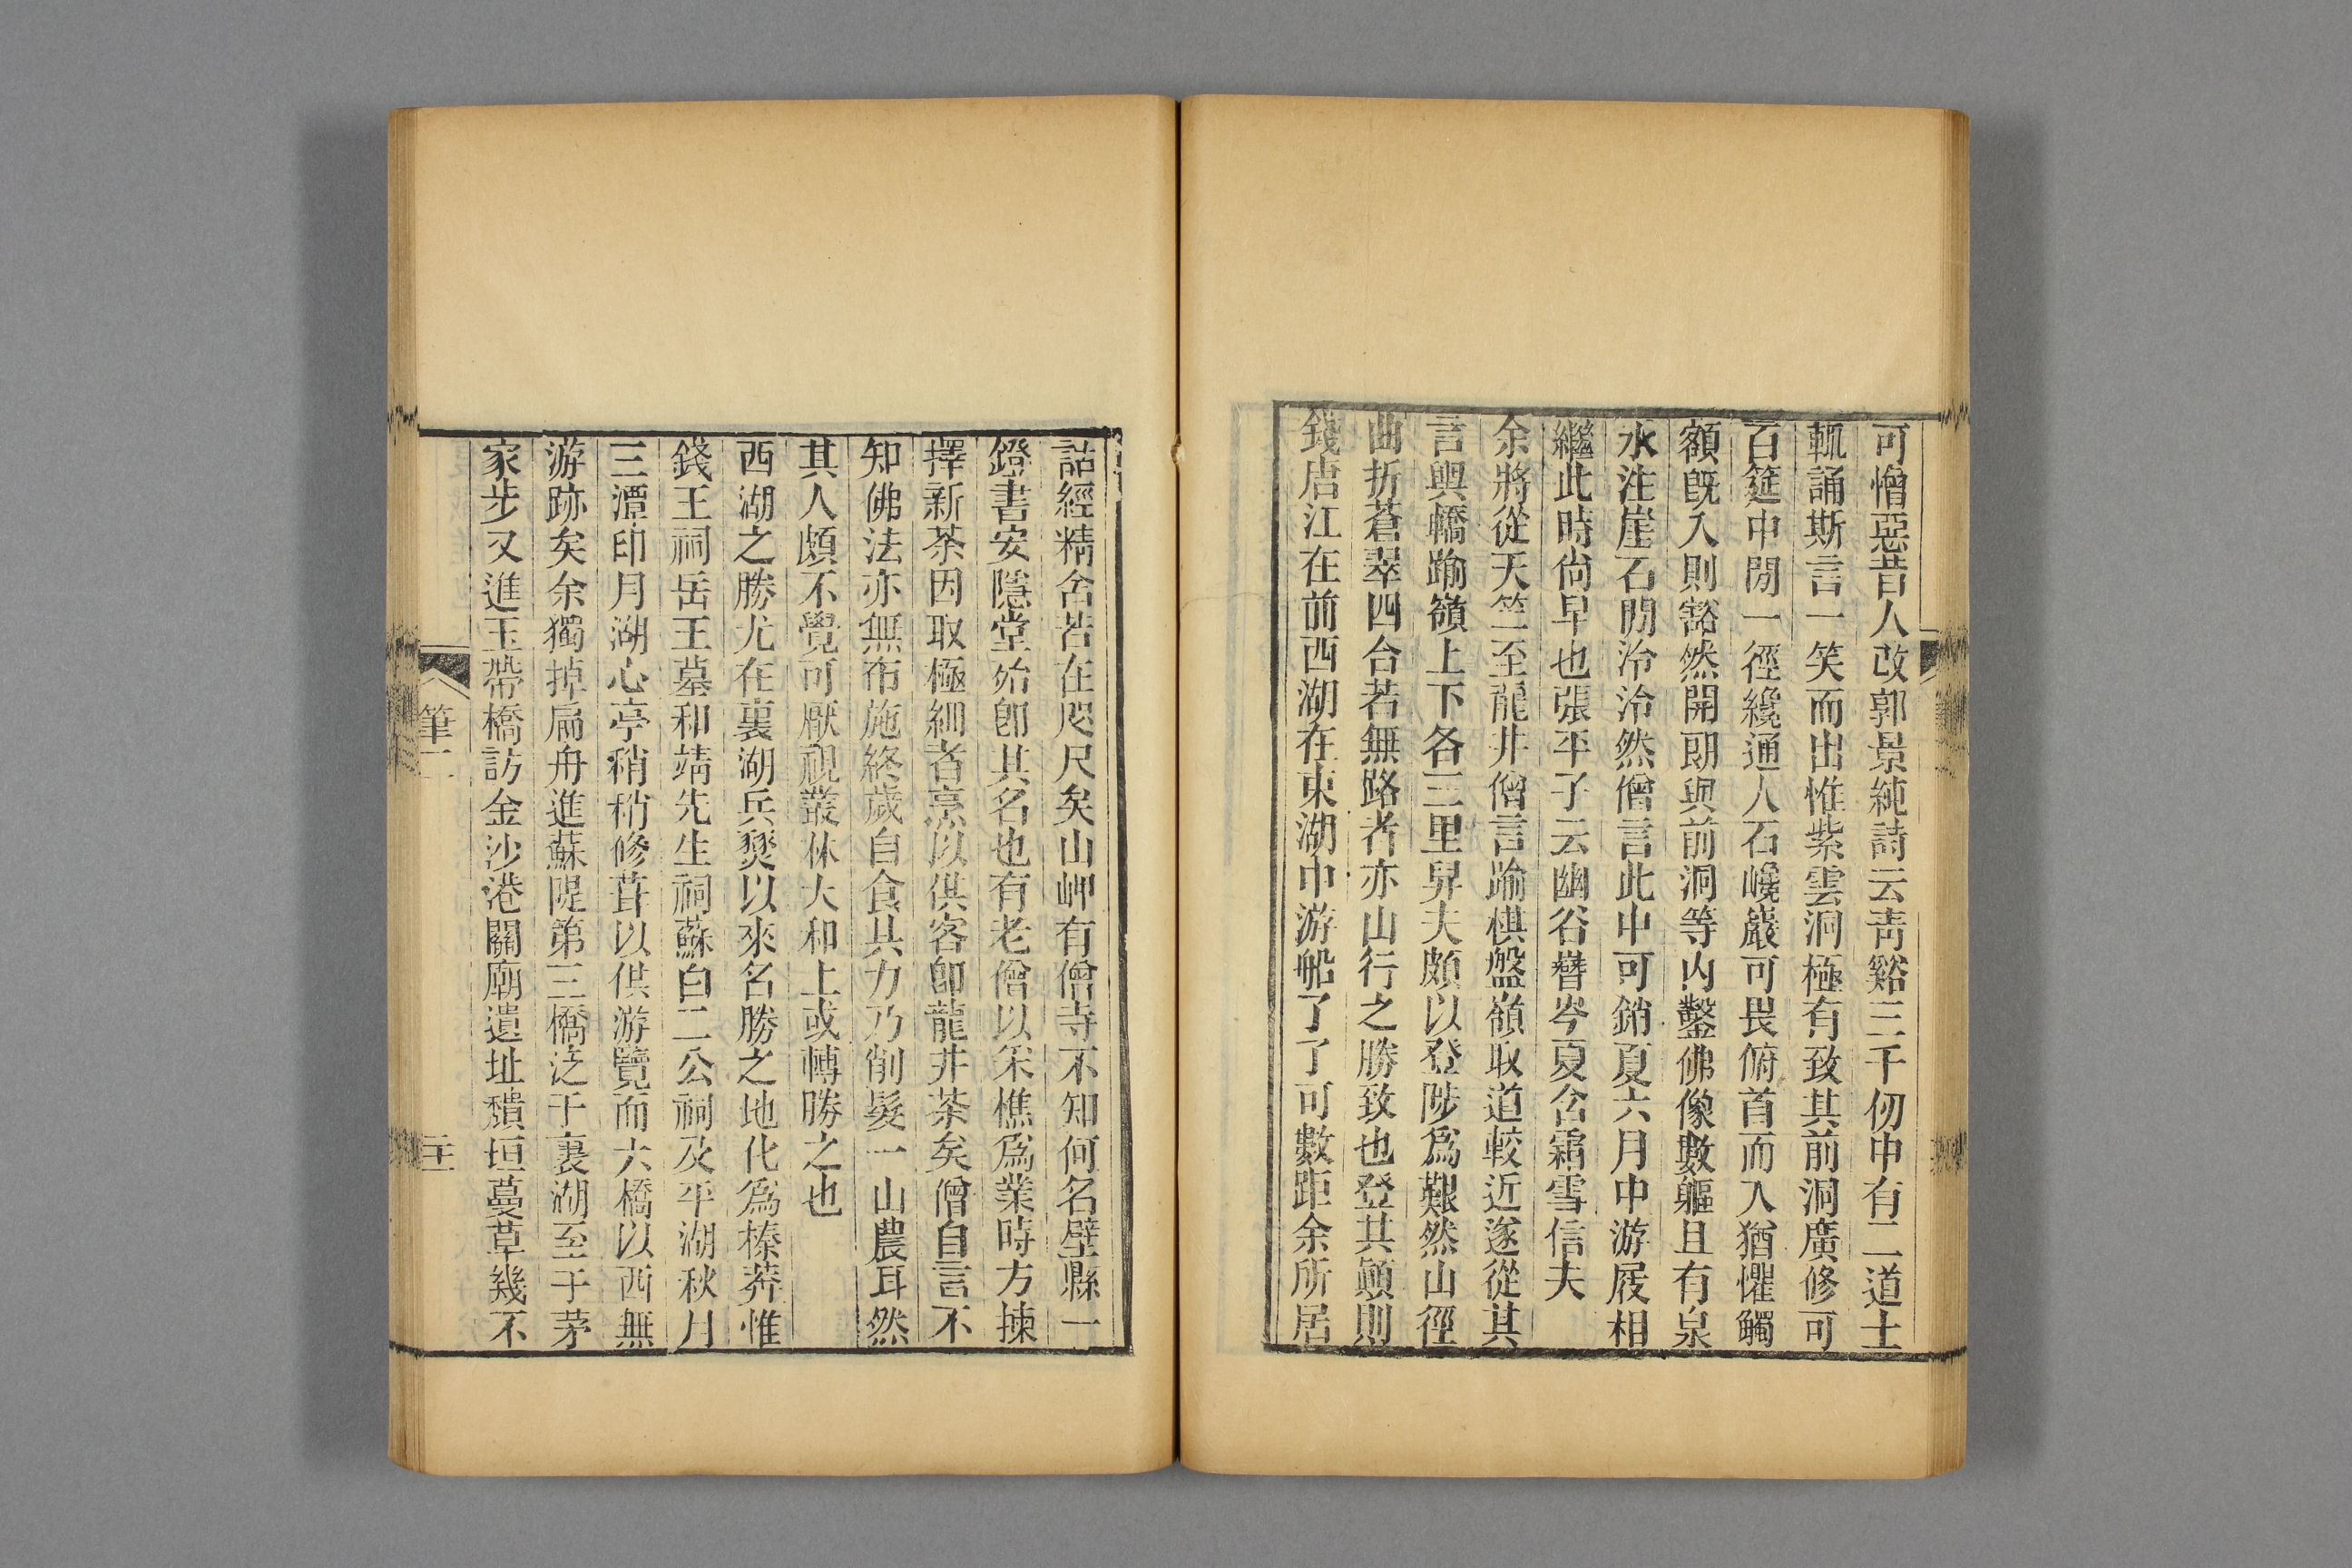 可憎惡昔人改郭景純詩云靑谿三千仞中有二道士
輒誦斯言一笑而出惟紫雲洞極有致其前洞廣修可
百筵中閒一徑纔通人石巉巖可畏俯首而入猶懼觸
額旣入則豁然開朗與前洞等內鑿佛像數軀且有泉
水注崖石閒泠泠然僧言此中可銷夏六月中游屐相
繼此時尙早也張平子云幽谷朁岑夏含霜雪信夫
余將從天竺至龍井僧言踰棋盤嶺取道較近遂從其
言輿轎踰嶺上下各三里舁夫頗以登陟爲艱然山徑
曲折蒼翠四合若無路者亦山行之勝致也登其顚則
錢唐江在前西湖在東湖中游船了了可數距余所居
詁經精舍若在咫尺矣山岬有僧寺不知何名壁縣一
鐙書安隱堂殆卽其名也有老僧以采樵爲業時方揀
擇新茶因取極細者烹以供客卽龍井茶矣僧自言不
知佛法亦無布施終歲自食其力乃削髮一山農耳然
其人頗不覺可厭視叢林大和上或轉勝之也
西湖之勝尤在裏湖兵燹以來名勝之地化爲榛莽惟
錢王祠岳王墓和靖先生祠蘇白二公祠及平湖秋月
三潭印月湖心亭稍稍修葺以供游覽而六橋以西無
游跡矣余獨掉扁舟進蘇隄第三橋泛于裏湖至于茅
家步又進玉帶橋訪金沙港關廟遺址穨垣蔓草幾不
筆二
二十